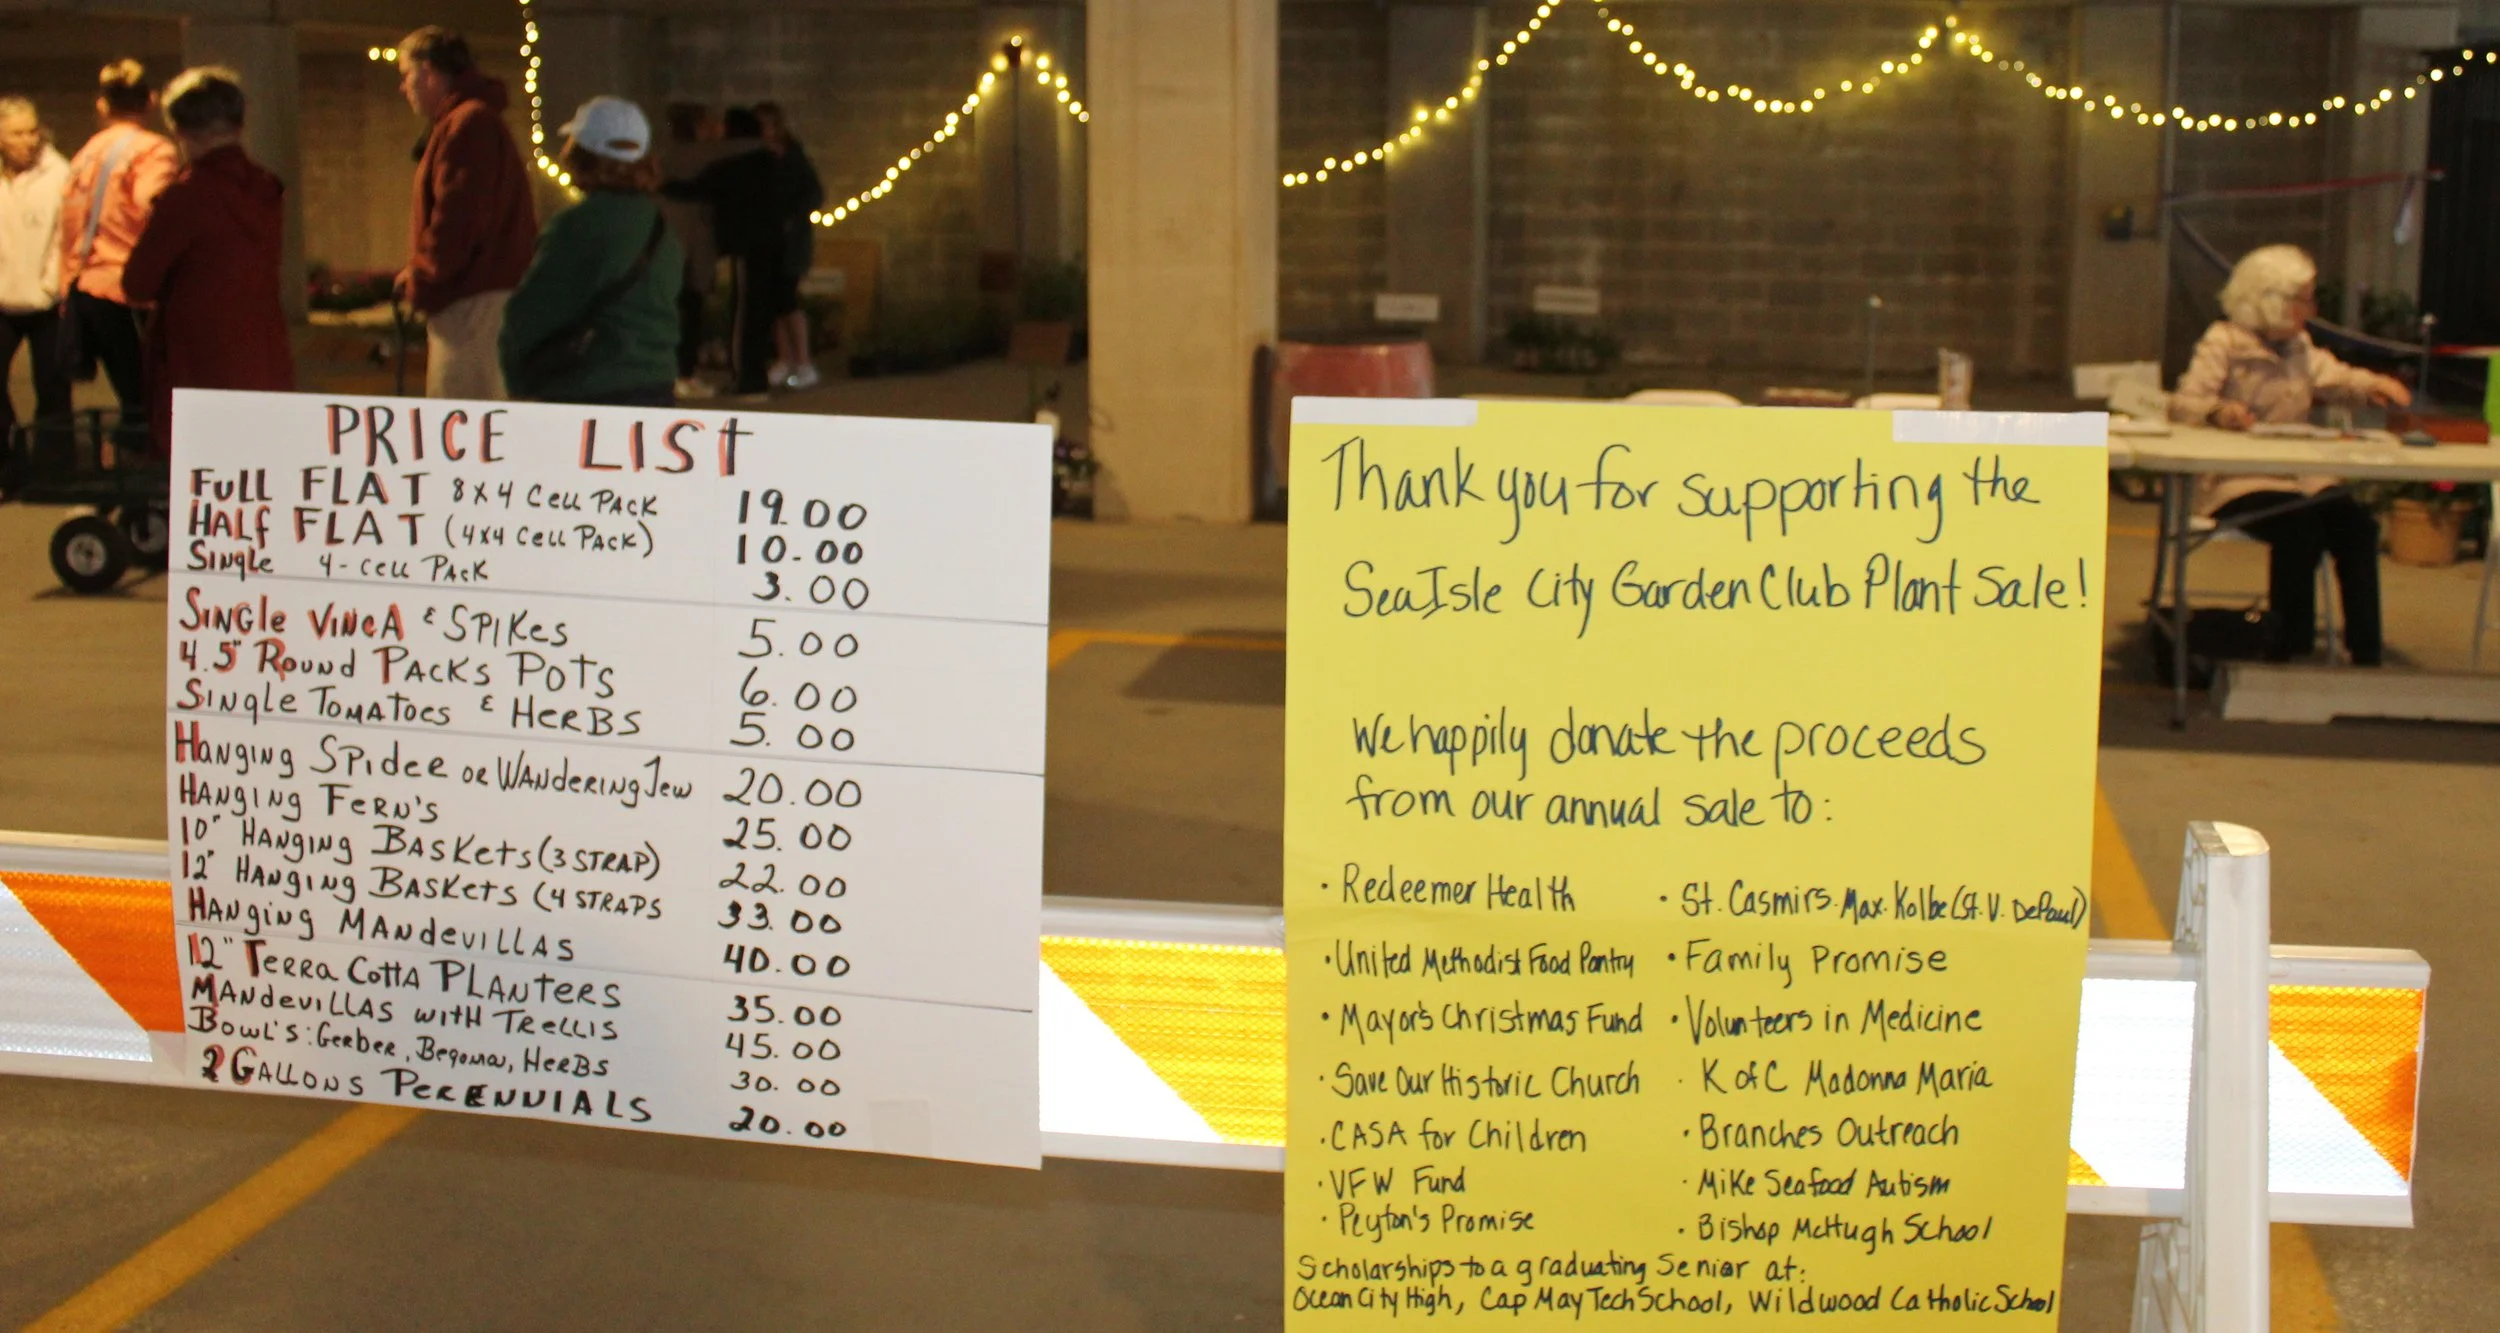 PRICE LIST
FULL FLAT 8X4 Cell PACK 19.00
HALF FLAT (4x4 Cell PACK) 10.00
Single 4-cell PACK 3.00
SINGle VINCA & SPIKes 5.00
4.5" Round PACKS POTS 6.00
SINgle TOMATOES & HERBS 5.00
HANGING SPIDER OR WANDERING Jew 20.00
HANGING FERN'S 25.00
10" HANGING BASKETS (3 STRAP) 22.00
12" HANGING BASKETS (4 STRAPS 33.00
HANGING MANDEVILLAS 40.00
12" TERRA COTTA PLANTERS 35.00
MANDEVILLAS WITH TRELLIS 45.00
BOWL'S: GERBER, Begonia, HERBS 30.00
2 GALLONS PERENNIALS 20.00
Thank you for supporting the
Sea Isle City Garden Club Plant Sale!
We happily donate the proceeds
from our annual sale to:
• Redeemer Health • St. Casmirs. Max. Kolbe (St. V. DePaul)
• United Methodist Food Pantry • Family Promise
• Mayor's Christmas Fund • Volunteers in Medicine
• Save Our Historic Church • K of C Madonna Maria
• CASA for Children • Branches Outreach
• VFW Fund • Mike Seafood Autism
• Peyton's Promise • Bishop McHugh School
Scholarships to a graduating Senior at:
Ocean City High, Cap May Tech School, Wildwood Catholic School